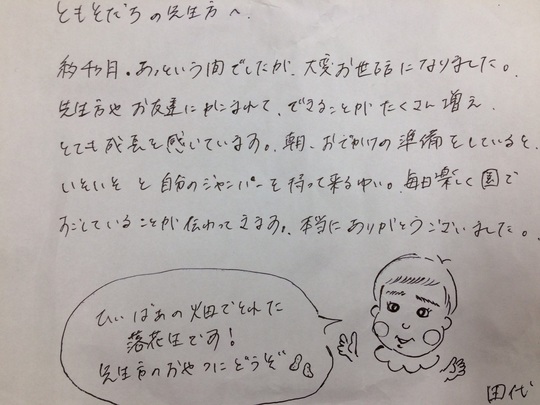 ともそだちの先生方へ.
約4ヶ月。あっという間でしたが、大変お世話になりました。
先生方やお友達にかこまれて、できることがたくさん増え、
とても成長を感じています。朝、おでかけの準備をしていると、
いそいそと自分のジャンパーを持って来るゆい。毎日楽しく園で
すごしていることが伝わってきます。本当にありがとうございました。
ひいばぁの畑でとれた
落花生です!
先生方のおやつにどうぞ
田代